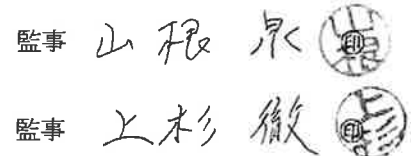 監事 山根 泉 ㊞
監事 上杉 徹 ㊞